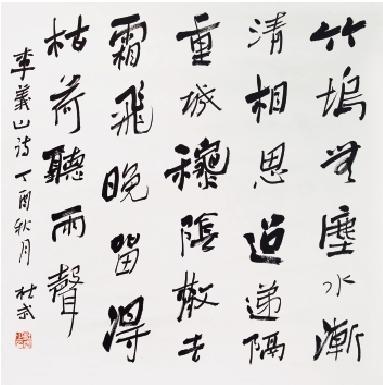 竹塢無塵水漸
清相思迢遞隔
重城陰散去
霜飛晚留得
枯荷聽雨聲
李義山詩 丁酉秋月